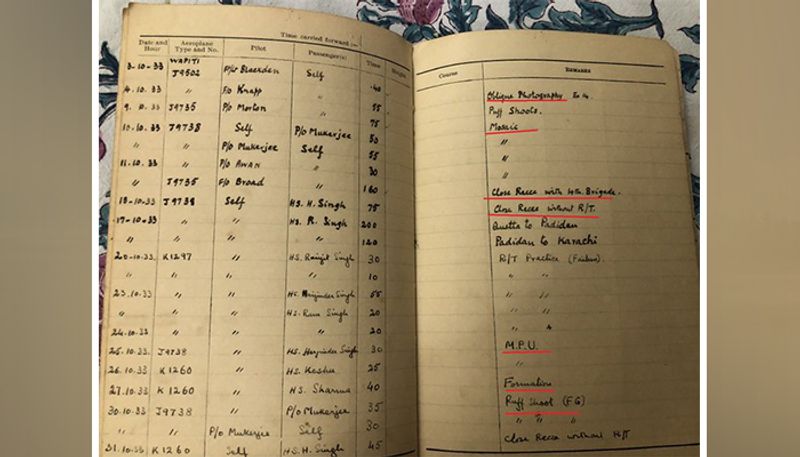 Time carried forward :—
Date and Hour Aeroplane Type and No. Pilot Passenger(s) Time Height Course REMARKS
3-10-33 WAPITI J9502 Self Oblique Photography
4.10.33 F/O Knapp " 40 Puff Shoots.
9.10.33 J9735 P/O Morton " 55 Mosaic
10.10.33 J9738 Self P/O Mukerjee "
" " P/O Mukerjee Self "
11.10.33 " P/O AWAN " "
" J9735 F/O Broad " Close Recce with Brigade.
18-10-33 J9738 Self HS. H. Singh 75 Close Recce without R/T.
17-10-33 " " HS. R. Singh 200 Quetta to Padidan
" " " " 120 Padidan to Karachi
20-10-33. K1297 " HS. Ranjit Singh 30 R/T Practice (Failure).
" " " " 10 " "
23.10.33 " " Singh 55 " "
" " " HS. Ram Singh 20
24.10.33 " " " 20 " "
25.10.33. J9738 " HS. Harjinder Singh 30 M.P.U.
26.10.33 K1260 " HS. 25 "
27.10.33 K1260 " HS. Sharma 40 Formation
30.10.33 J9738 " P/O Mukerjee 35 Puff Shoot (FG)
" " P/O Mukerjee Self 30 " " "
31.10.33 K1260 Self HS. H. Singh 45 Close Recce without R/T